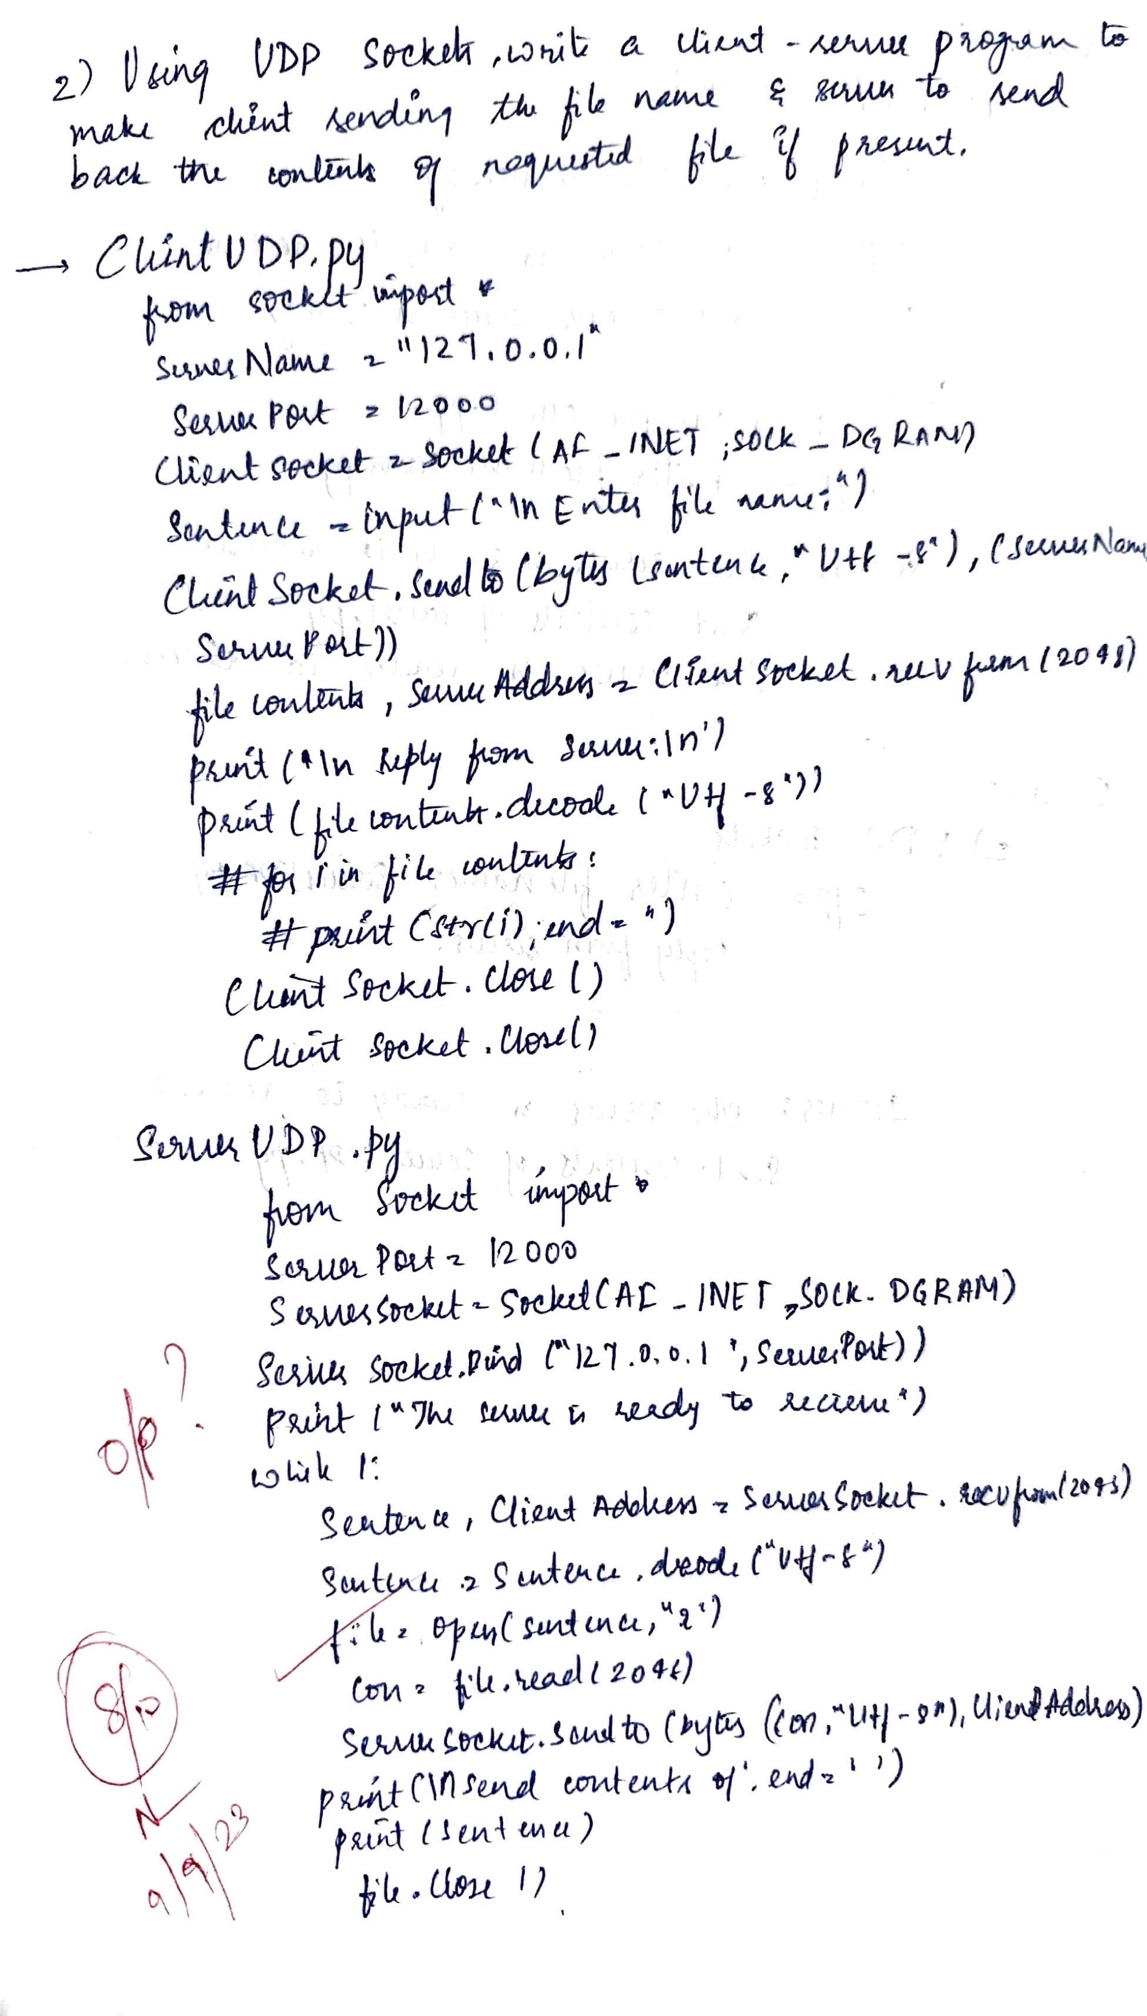 2) Using UDP sockets, write a client - server program to
make client sending the file name & server to send
back the contents of requested file if present.
→ ClientUDP.py
from socket import *
ServerName = "127.0.0.1"
ServerPort = 12000
Client socket = socket (AF_INET, SOCK_DGRAM)
Sentence = input ("\n Enter file name:")
Client Socket. Sendto (bytes (sentence, "Utf-8"), (serverName
ServerPort))
file contents, serverAddress = Client socket. recv from (2048)
print ("\n Reply from Server:\n')
print (file contents.decode ("Utf-8"))
# for i in file contents:
# print (str(i), end = ")
Client Socket. Close ()
Client socket. Close()
ServerUDP.py
from Socket import *
Server Port = 12000
Serversocket = Socket(AF_INET, SOCK_DGRAM)
Server socket.bind ("127.0.0.1", ServerPort))
print ("The server is ready to recieve")
while 1:
Sentence, Client Address = ServerSocket. recvfrom(2048)
Sentence = Sentence. decode ("Utf-8")
file = open(sentence, "r")
con = file.read(2048)
Server socket.Sendto (bytes ((con, "Utf-8"), ClientAddress)
print(\n send contents of', end = ' ')
print (sentence)
file. Close ()
o/p ?
8/10
N
9/9/23